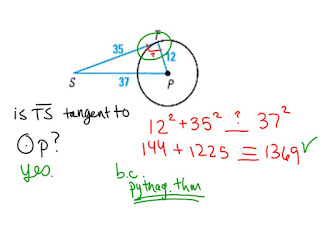 T
35
?
12
S
37
P
is TS tangent to
⊙p?
yes.
12² + 35² ≟ 37²
144 + 1225 = 1369 ✓
b.c.
pythag. thm